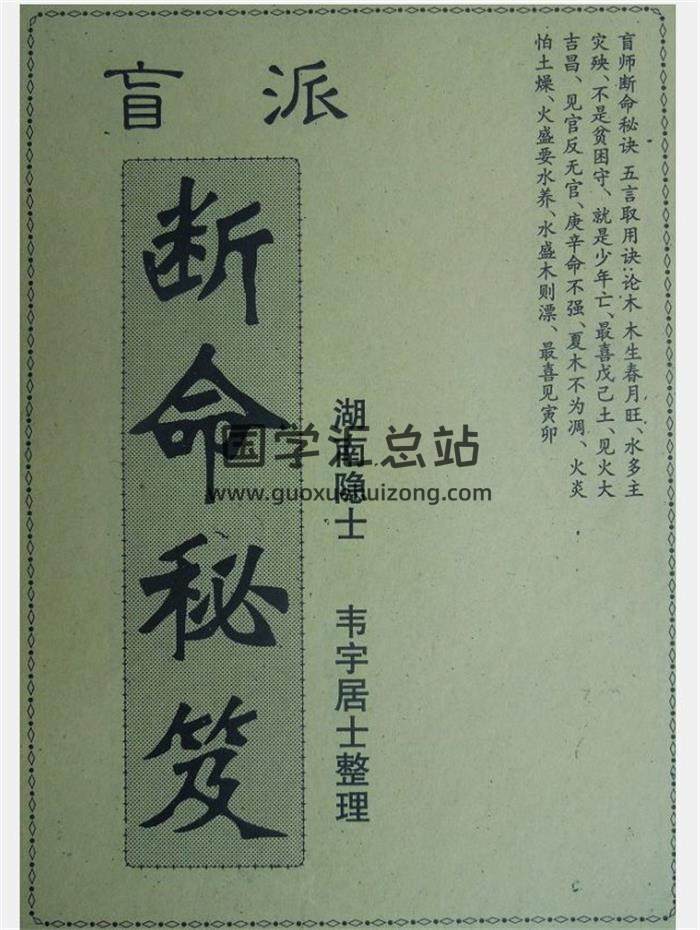 盲师断命秘诀 五言取用诀:论木 木生春月旺、水多主
灾殃、不是贫困守、就是少年亡、最喜戊己土、见火大
吉昌、见官反无官、庚辛命不强、夏木不为凋、火炎
怕土燥、火盛要水养、水盛木则漂、最喜见寅卯
盲派
断命秘笈
湖南隐士 韦宇居士整理
国学汇总站
www.guoxuehuizong.com